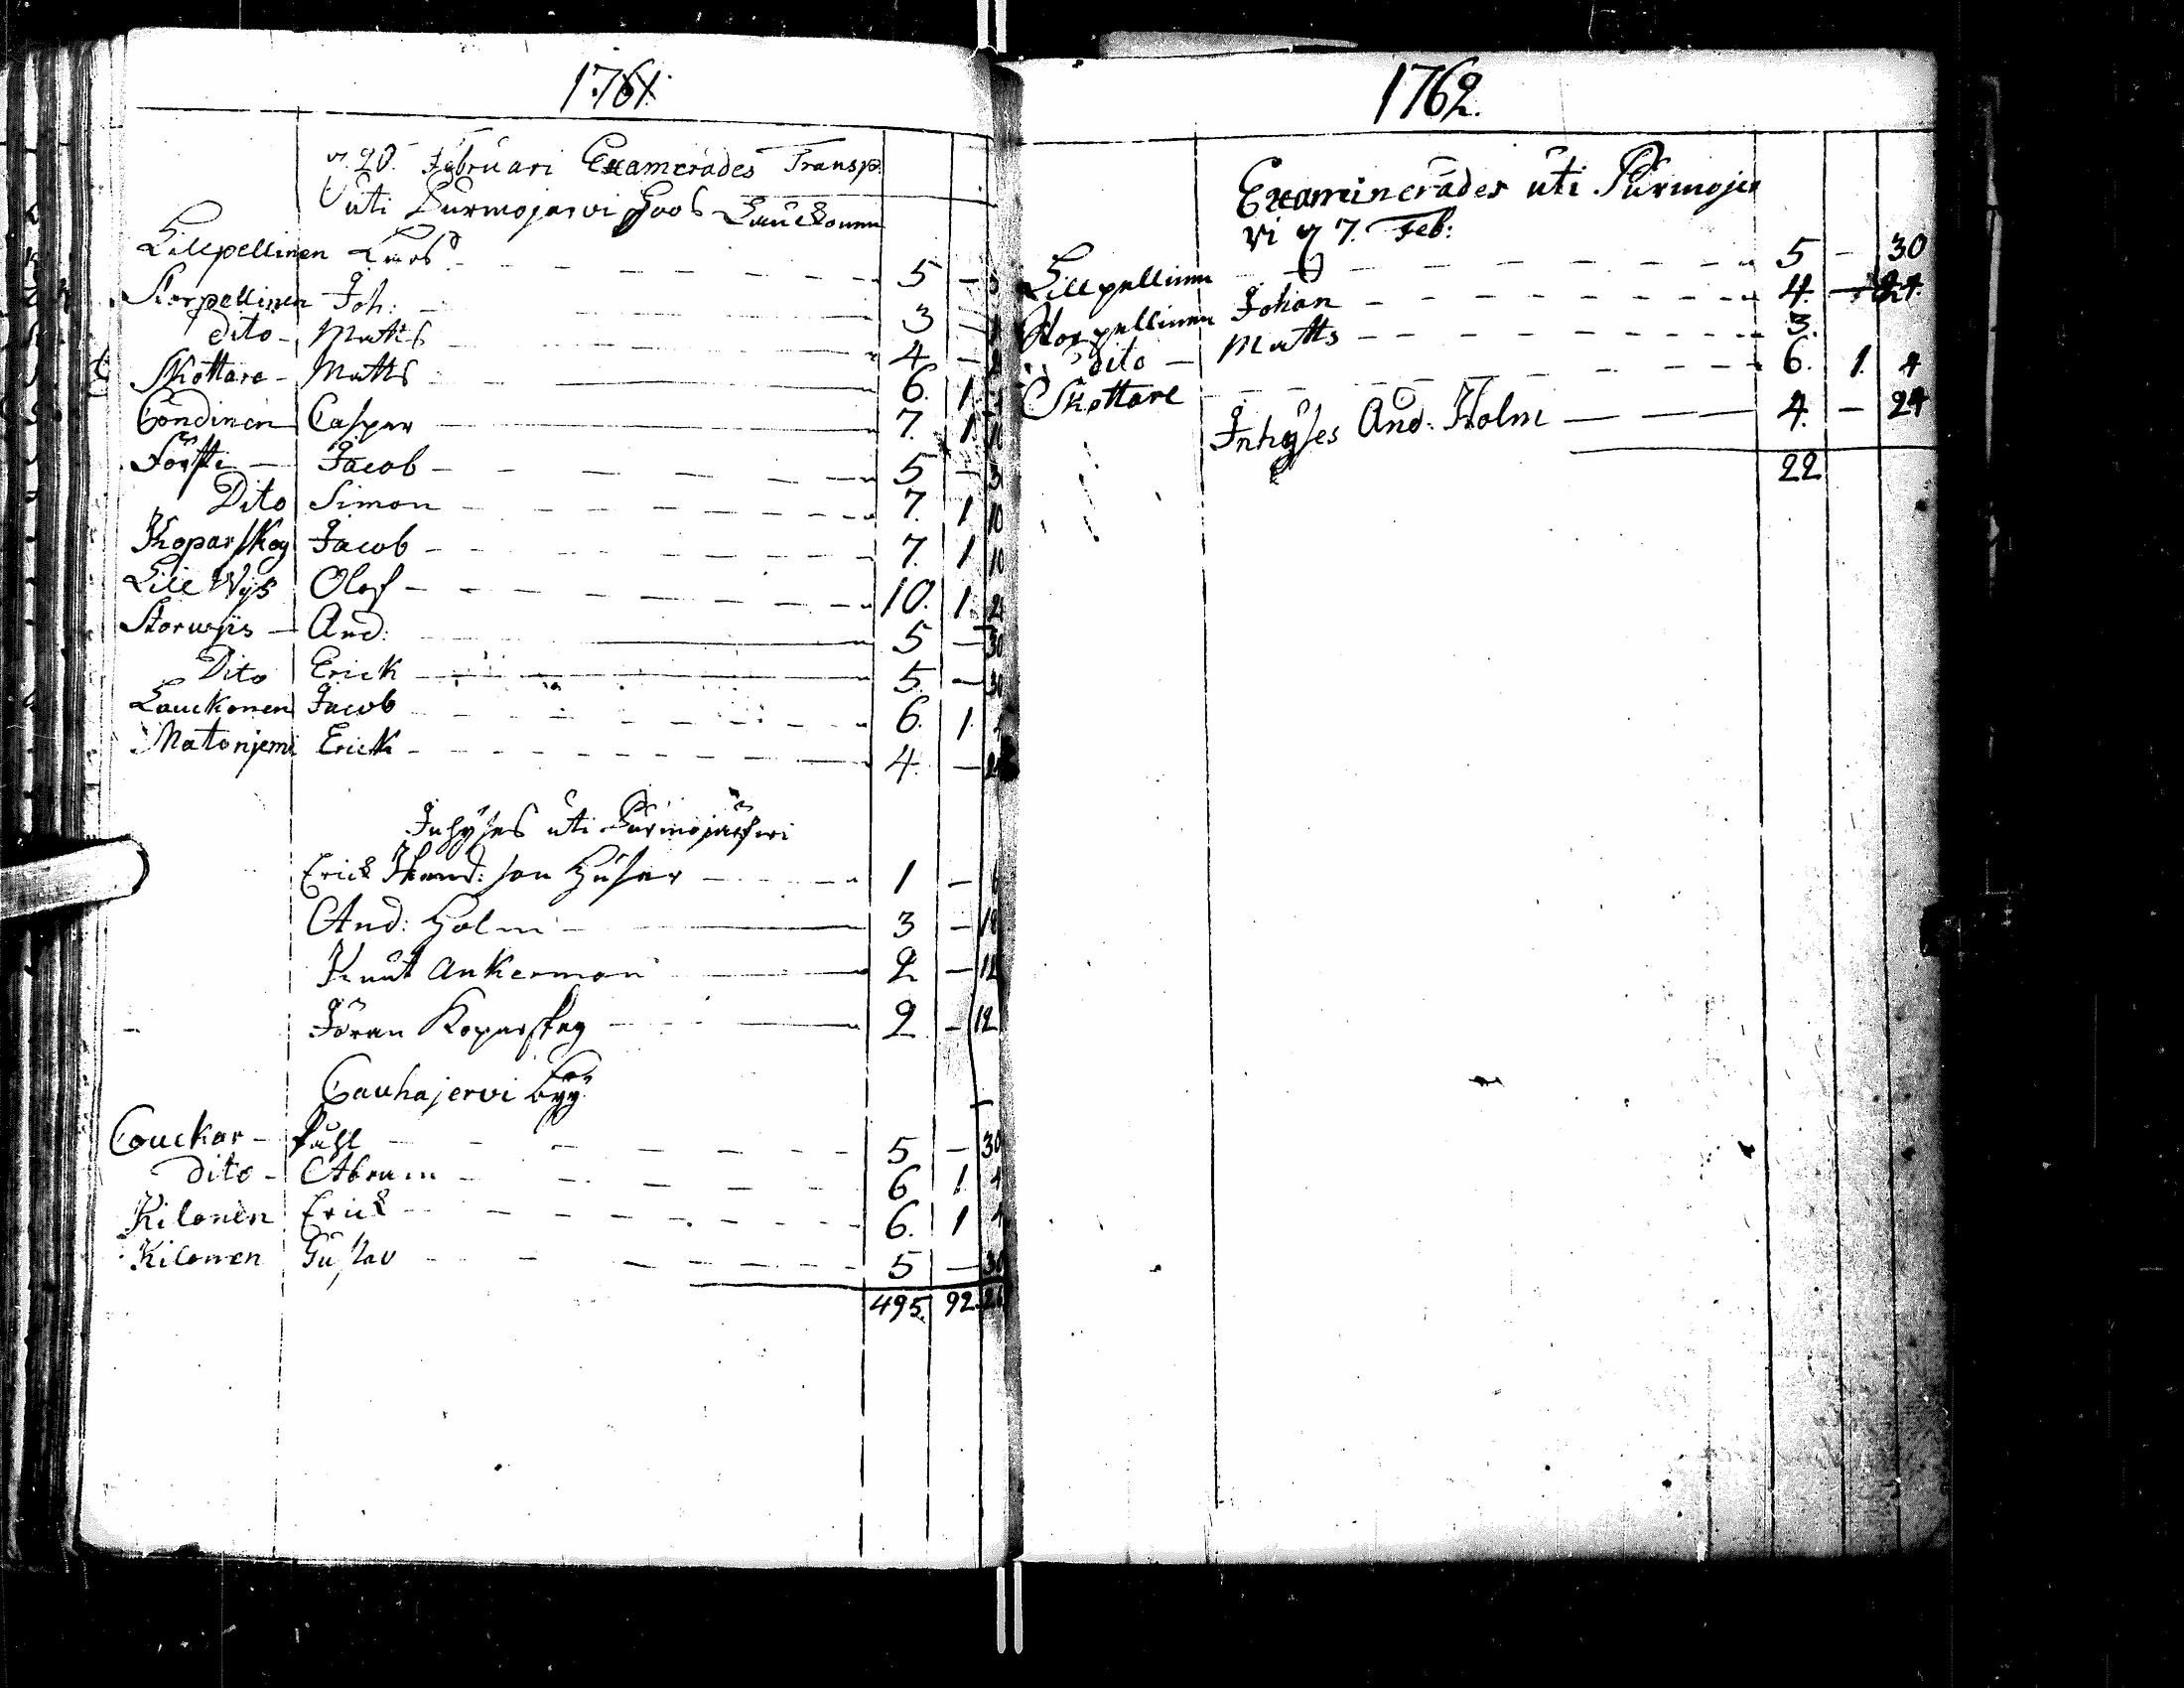 1761.
d 20. Februari Examerades Transp.
uti Purmojarvi Hoos Lauckonen
Lillpellinen Lars 5 –
Storpellinen Joh: 3 –
dito Matts 4 –
Skottare Matts 6. 1
Condinen Casper 7. 1. 10
Försti Jacob 5 – 30
Dito Simon 7. 1 10
Koparskog Jacob 7. 1 10
Lill Wijs Olof 10. 1.
Storwijs And: 5 – 30
Dito Erick 5. – 30
Lauckonen Jacob 6. 1.
Matonjemi Erick 4. –
Inhyses uti Purmojärfwi
Erick son Husar 1 – 6
And: Holm 3 – 18
Knut Ankerman 2 – 12
Jöran Koparskog 2 – 12
Cauhajervi by
Couckar Påhl 5 – 30
dito Abram 6 1. 4
Kilonen Erick 6. 1 4
Kilonen Gustav 5 – 30
495. 92.
1762.
Examinerades uti Purmojer
vi d 7. Feb:
Lillpellinen 5 – 30
Storpellinen Johan 4. – 24.
dito Matts 3.
Skottare 6. 1. 4
Inhyses And: Holm 4. – 24
22